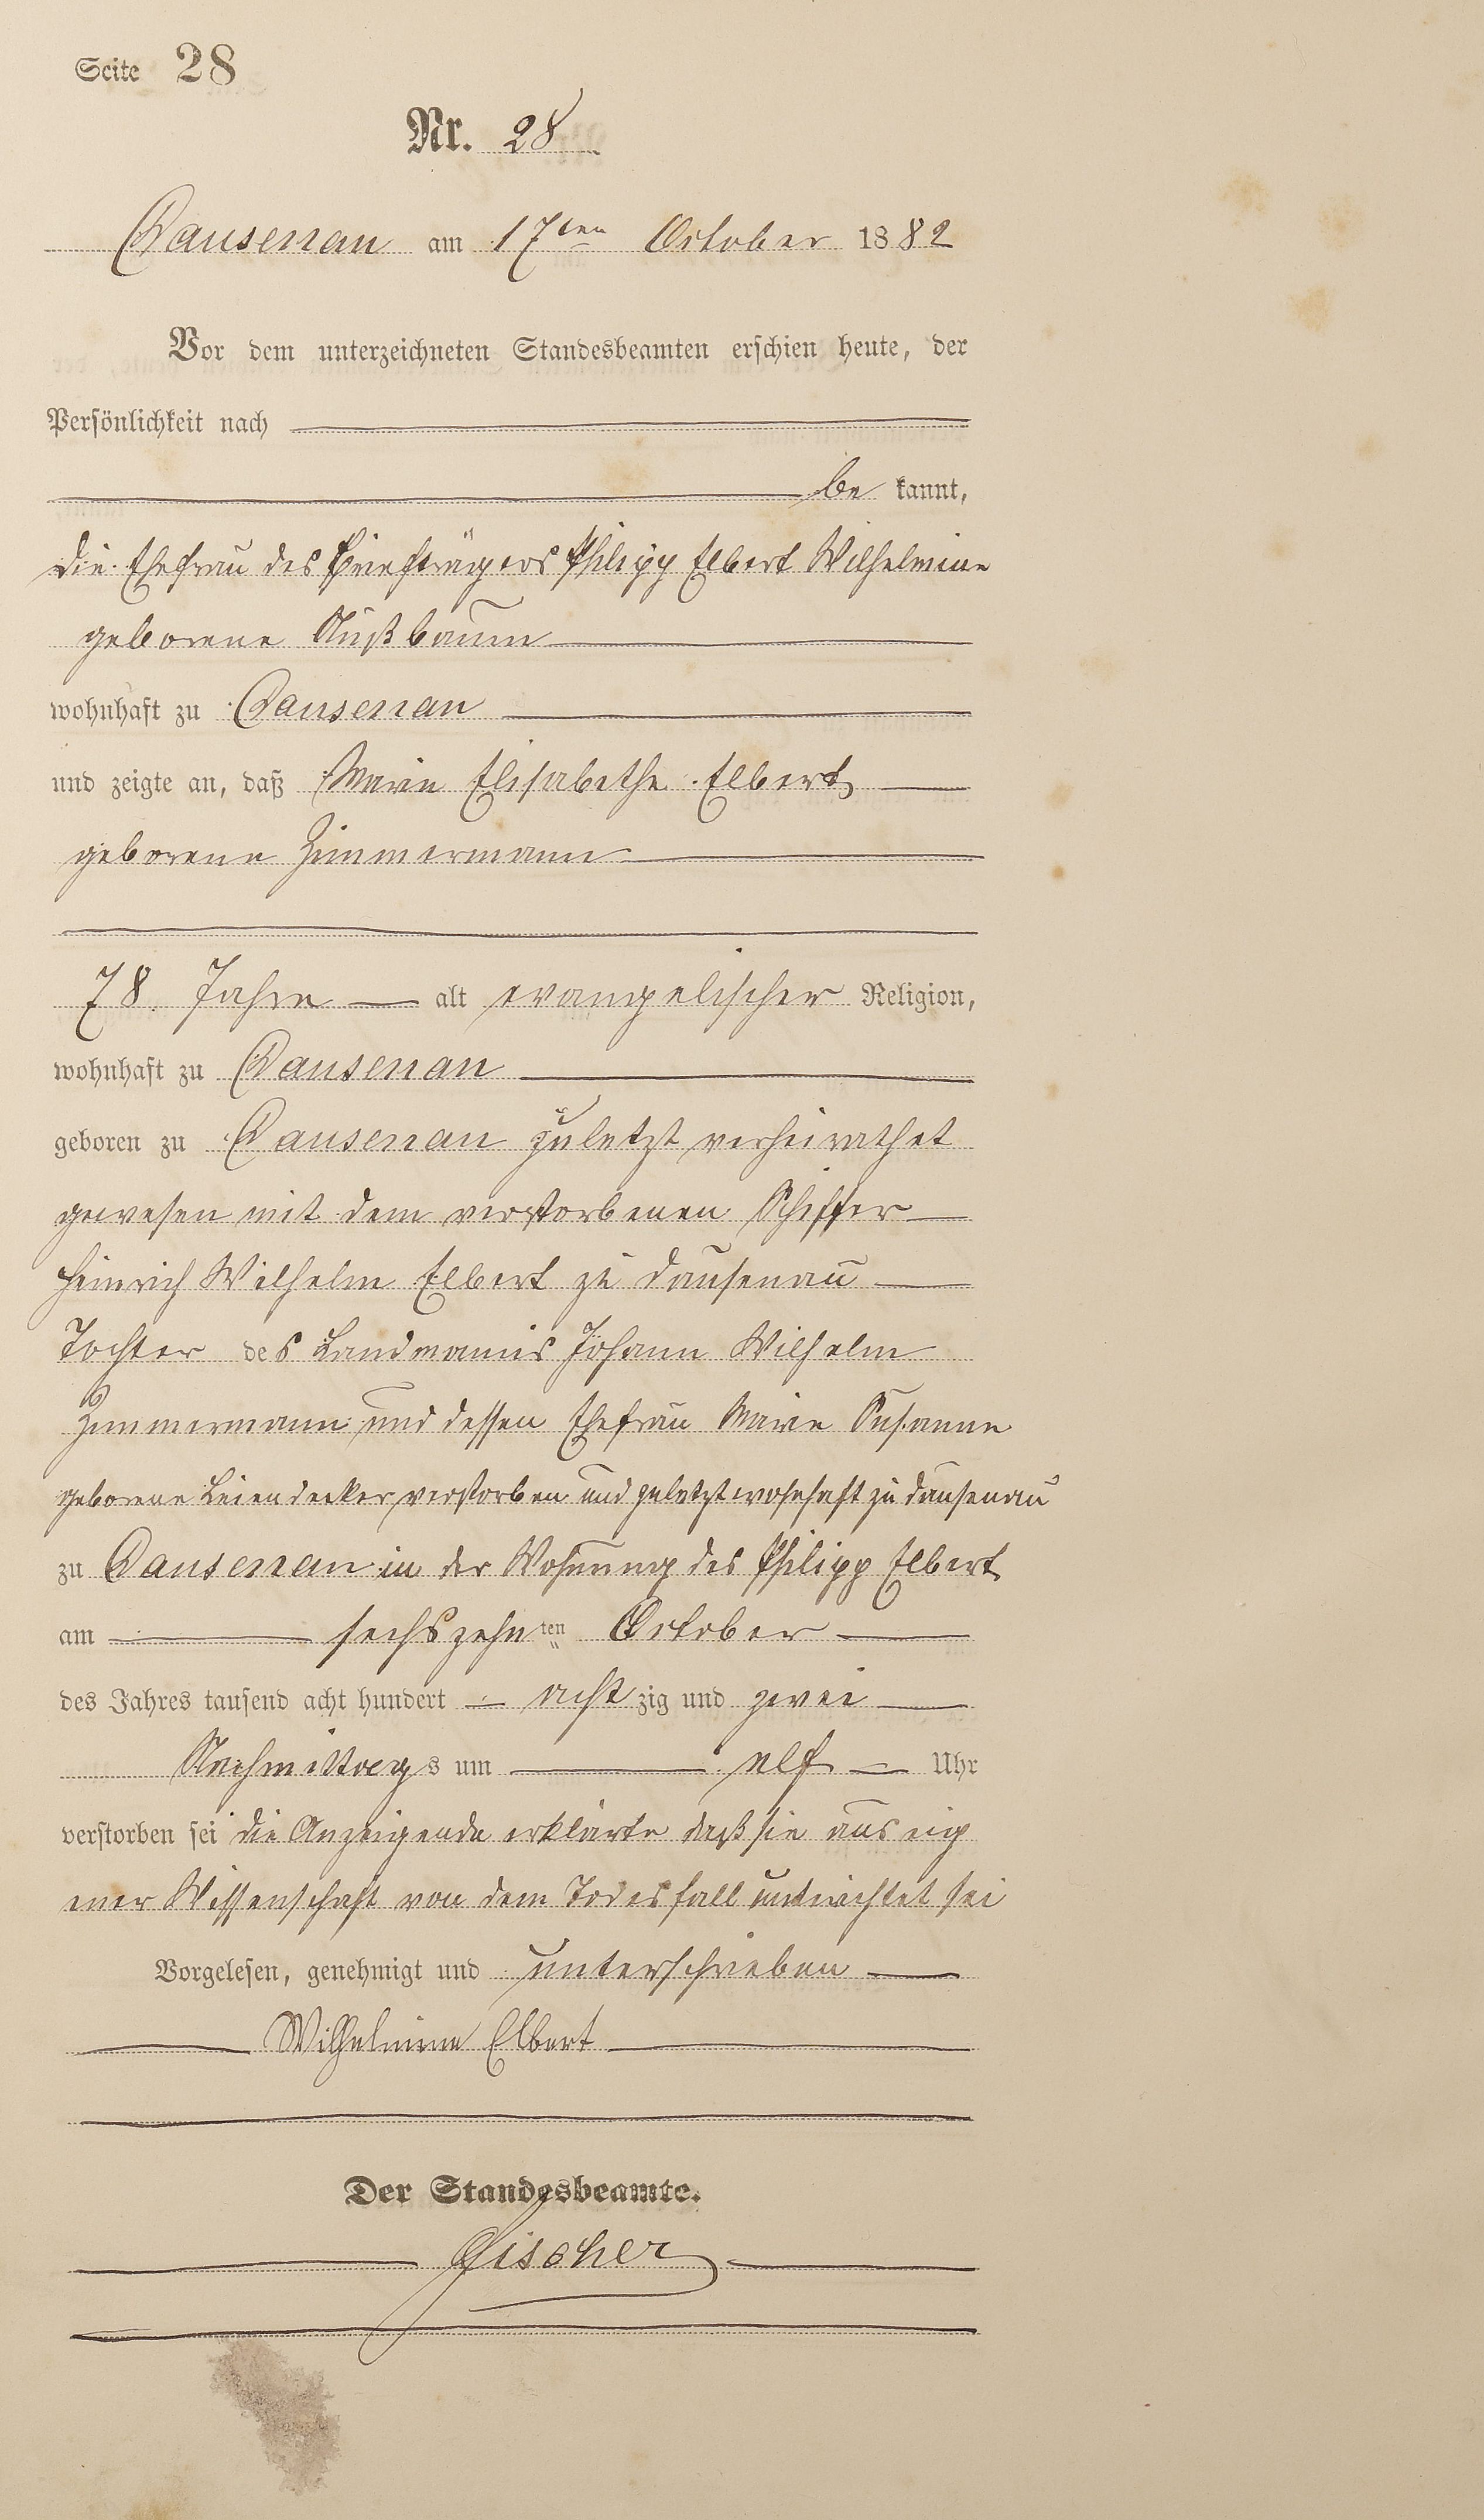 Seite 28
Nr. 28
Dausenau am 17ten October 1882
Vor dem unterzeichneten Standesbeamten erschien heute, der
Persönlichkeit nach
be kannt,
die Ehefrau des Briefträgers Philipp Elbert Wilhelmine
geborene Nußbaum
wohnhaft zu Dausenau
und zeigte an, daß Marie Elisabethe Elbert
geborene Zimmermann
78 Jahre alt evangelischer Religion,
wohnhaft zu Dausenau
geboren zu Dausenau zuletzt verheirathet
gewesen mit dem verstorbenen Schiffer
Heinrich Wilhelm Elbert zu Dausenau
Tochter des Landmanns Johann Wilhelm
Zimmermann und dessen Ehefrau Marie Susanne
geborene Leiendecker verstorben und zuletzt wohnhaft zu Dausenau
zu Dausenau in der Wohnung des Philipp Elbert
am sechszehnten October
des Jahres tausend acht hundert acht zig und zwei
Nachmittags um elf Uhr
verstorben sei die Anzeigende erklärte daß sie aus eig
ener Wissenschaft von dem Todesfall unterrichtet sei
Vorgelesen, genehmigt und unterschrieben
Wilhelmine Elbert
Der Standesbeamte.
Fischer